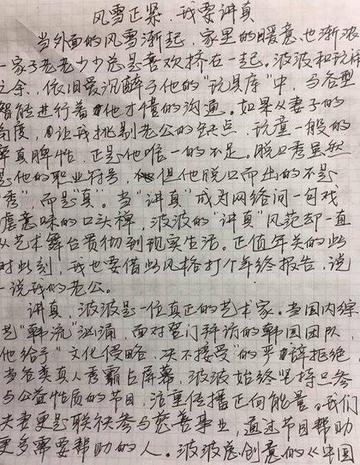 风雪正紧，我要讲真
当外面的风雪渐起，家里的暖意也渐浓
一家子老老少少总是喜欢挤在一起。波波和玩伴
之余，依旧爱沉醉于他的“玩具库”中，与各型
智能进行着他才懂的沟通。如果从妻子的
角度，让我挑剔老公的缺点，玩童一般的
较真脾性，正是他唯一的不足。脱口秀显然
是他的职业符号，但他脱口而出的不是
秀”，而是“真”。当“讲真”成为网络间一句戏
虐意味的口头禅，波波的“讲真”风范却一直
从艺术舞台贯彻到现实生活。正值年关的此
时此刻，我也要借此风格打个年终报告，说
一说我的老公。
讲真，波波是一位真正的艺术家。当国内综
艺“韩流”汹涌，面对登门拜访的韩国团队，
他给予“文化侵略，决不接受”的严辞拒绝，
当各类真人秀霸占屏幕，波波始终坚持只参
与公益性质的节目，注重传播正向能量。我们
夫妻更是联袂参与慈善事业，通过节目帮助
更多需要帮助的人。波波总创意的《中国